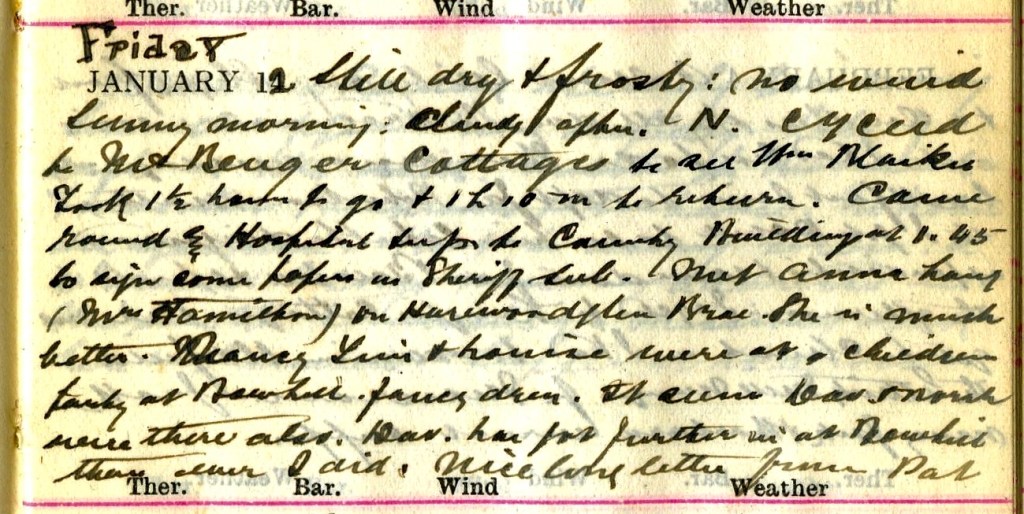 Ther. Bar. Wind Weather
Friday
JANUARY 12 Still dry & frosty: no wind
Sunny morning: cloudy aftn. N. cycled
to Mt Benger Cottages to see Mrs Blaikie
Took 1½ hours to go & 1 h 10 m to return. Came
round by Hospital steps to County Buildings at 11.45
to sign some papers as Sheriff sub. Met Anna Lang
(Mrs Hamilton) on Harewoodglen Brae. She is much
better. Nancy & Louise were at a children
party at Bowhill. fancy dress. It seems Dav. & Norah
were there also. Dav. has got further in at Bowhill
than ever I did. Nice long letter from Pat
Ther. Bar. Wind Weather